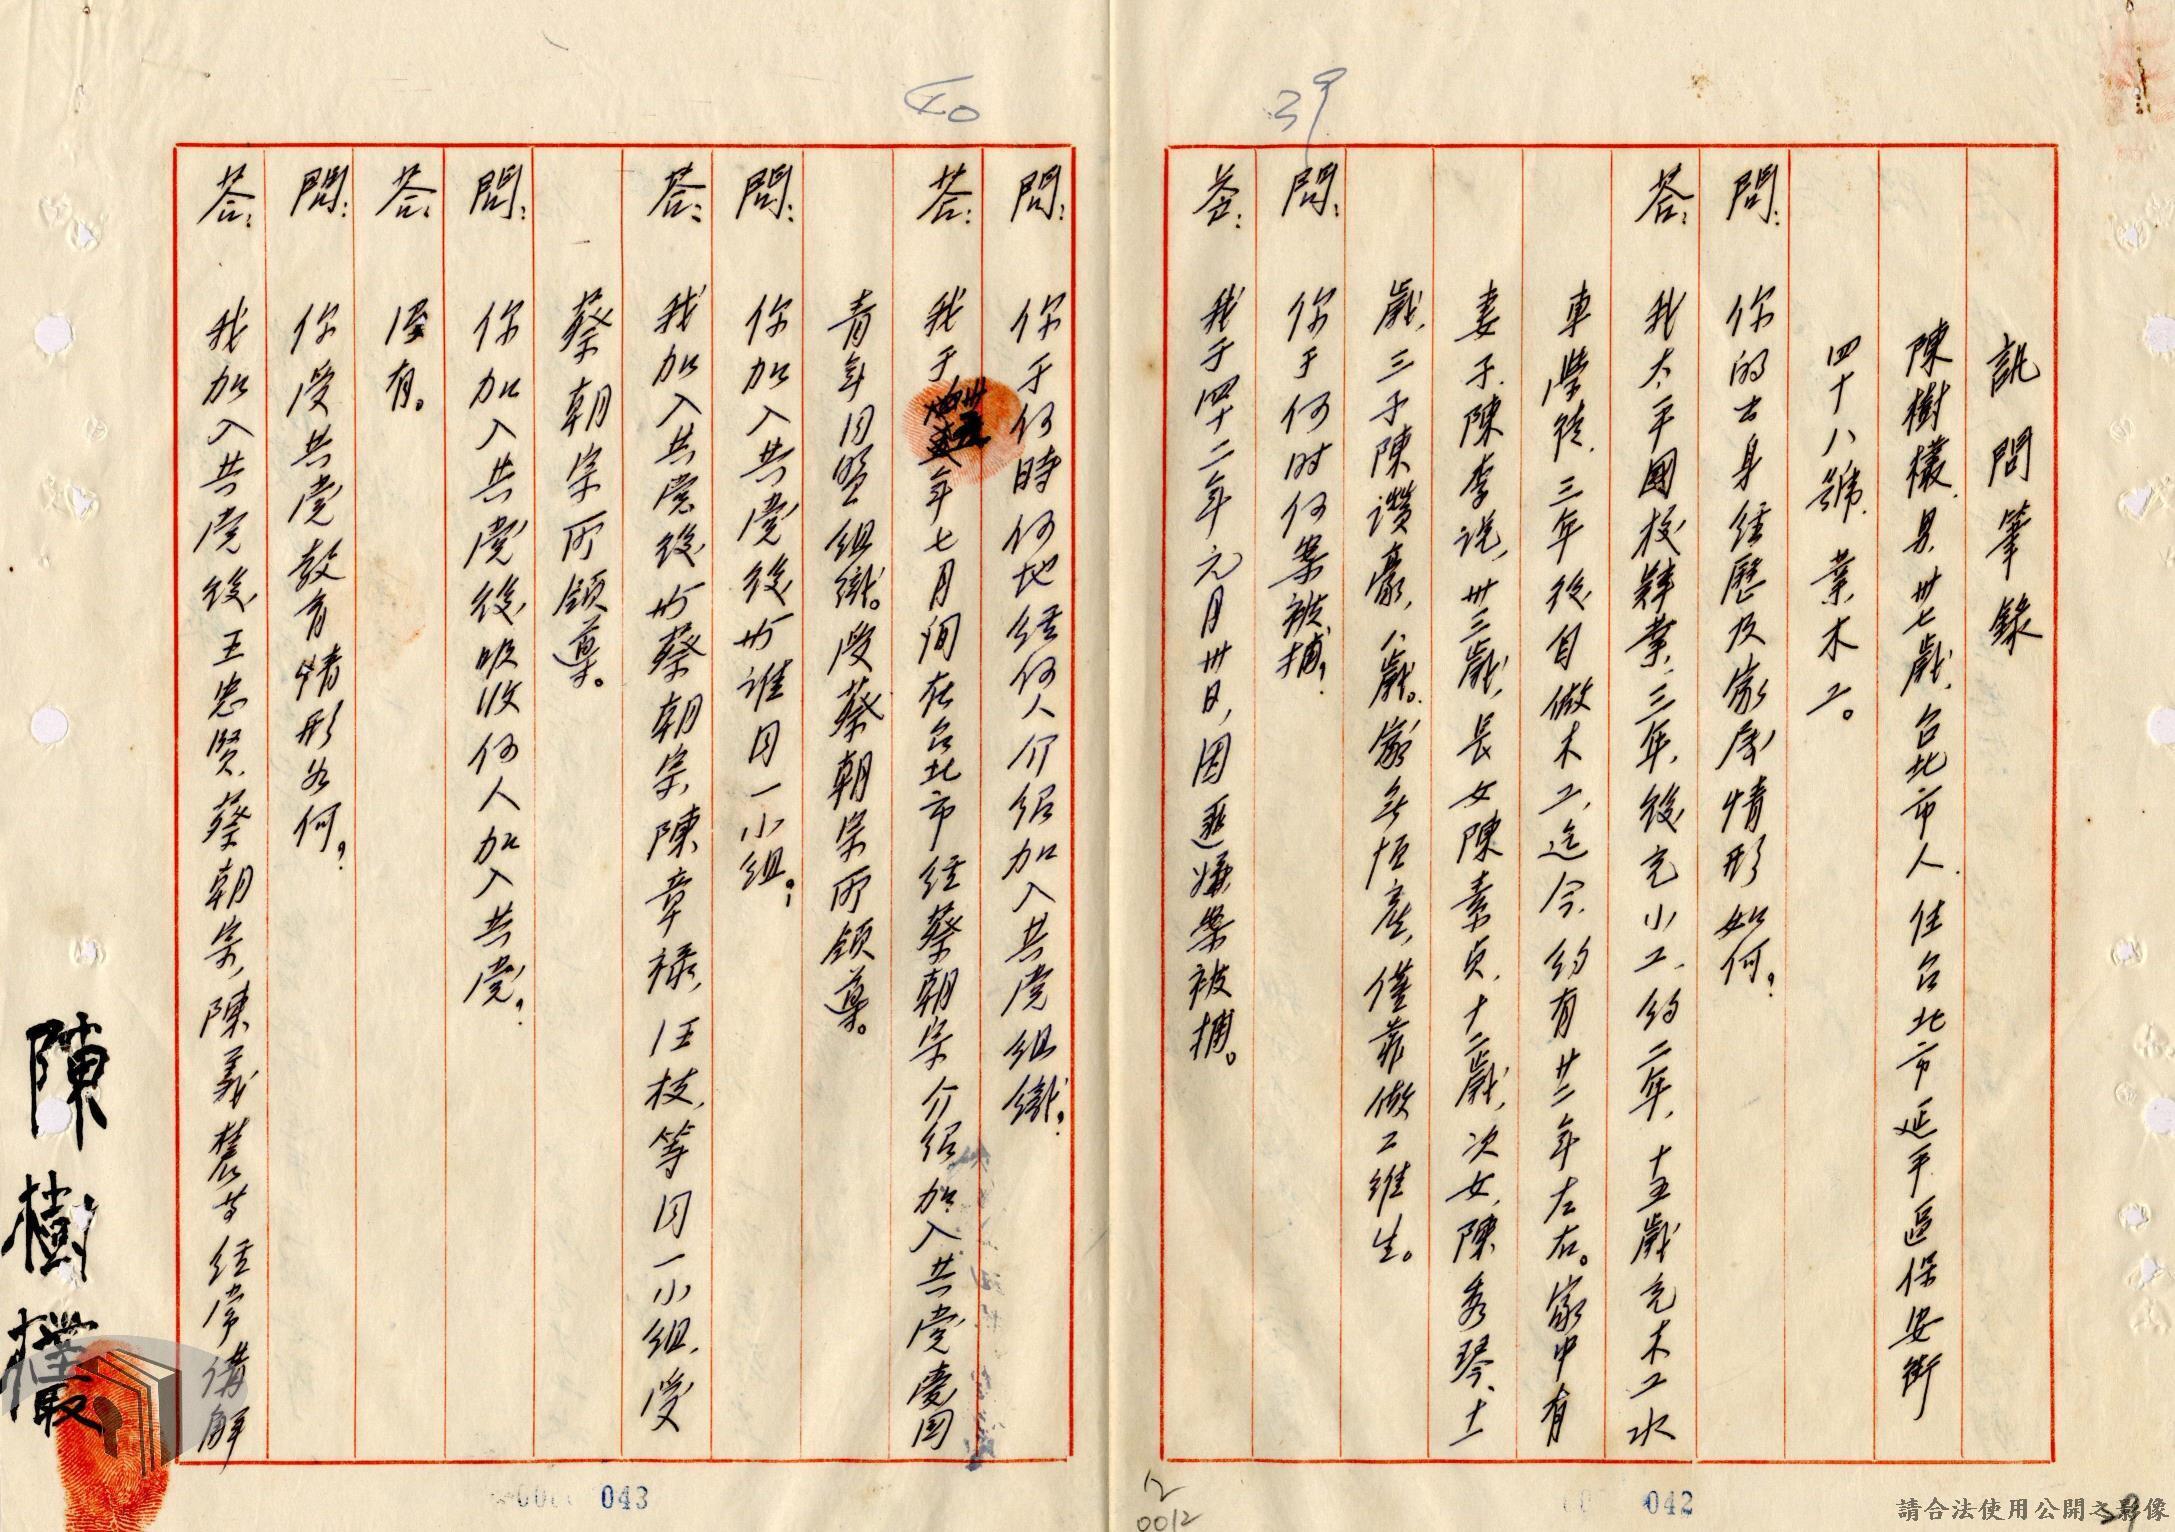 39
訊問筆錄
陳樹欉，男，卅七歲，台北市人，住台北市延平區保安街
四十八號，業木工。
問：你的出身經歷及家庭情形如何？
答：我太平國校肄業，三年，後充小工，約二年，十五歲充木工水
車學徒，三年後自做木工，迄今，約有廿二年左右。家中有
妻子，陳李說，卅三歲，長女陳素貞，十二歲，次女，陳秀琴，十一
歲，三子陳讚豪，八歲。家無恒產，僅靠做工維生。
問：你于何时何案被捕？
答：我于四十二年元月卅日，因匪嫌案被捕。
042
12
0012
40
問：你于何時何地経何人介紹加入共党組織？
答：我于卅五年七月间在台北市経蔡朝宗介紹加入共党愛国
青年同盟組織。受蔡朝宗所領導。
問：你加入共党後，与谁同一小組？
答：我加入共党後，与蔡朝宗，陳章禄，汪枝，等同一小組，受
蔡朝宗所領導。
問：你加入共党後，吸收何人加入共党？
答：沒有。
問：你受共党教育情形如何？
答：我加入共党後，王忠贤，蔡朝宗，陳義農等経常講解
陳樹欉
043
請合法使用公開之影像
39